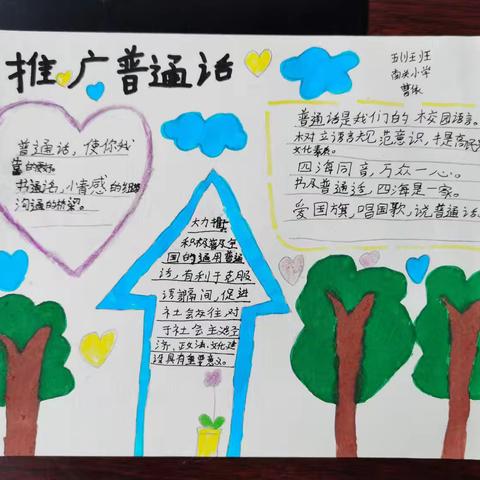 推广普通话
五(1)班
南关小学
普通话，使你我
普通话，小情感的
沟通的桥梁。
普通话是我们的校园语言。
树立语言规范意识，提高
文化素养。
四海同音，万众一心。
书及普通话，四海是一家。
爱国旗，唱国歌，说普通话
大力推
积极普及全
国的通用普通
话，有利于克服
语隔间，促进
社会交往对
于社会主
济，政治，文化建
设具有重要意义。